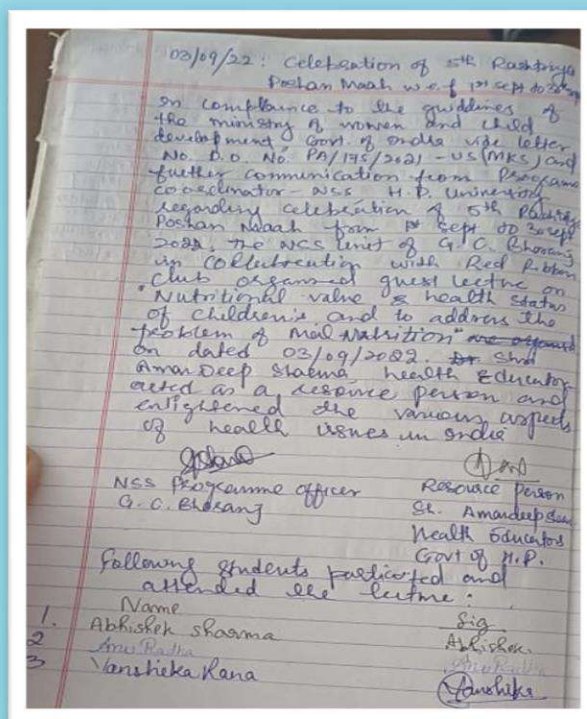 03/09/22: Celebration of 5th Rashtriya
Poshan Maah w.e.f 1st sept to 30th sept
In compliance to the guidlines of
the ministry of women and child
development, Govt. of India vide letter
No. D.O. No. PA/175/2021-US(MKS) and
further communication from Program
coordinator - NSS H.P. University
regarding celebration of 5th Rashtriya
Poshan Maah from 1st sept to 30 sept
2022, the NSS Unit of G.C. Bhorang
in collabration with Red Ribbon
Club organised guest lecture on
"Nutritional value & health status
of children's and to address the
problem of Mal Nutrition"
on dated 03/09/2022. Shri
Aman Deep Sharma, health Educator
acted as a resource person and
enlightened the various aspects
of health issues in India
NSS Programme Officer
G.C. Bhorang
Resource Person
Sh. Amandeep
Health Educators
Govt of H.P.
Following students particited and
attended the lecture:
Name Sig
1. Abhishek Sharma Abhishek
2 Anu Radha Anu Radha
3 Vanshika Rana Vanshika